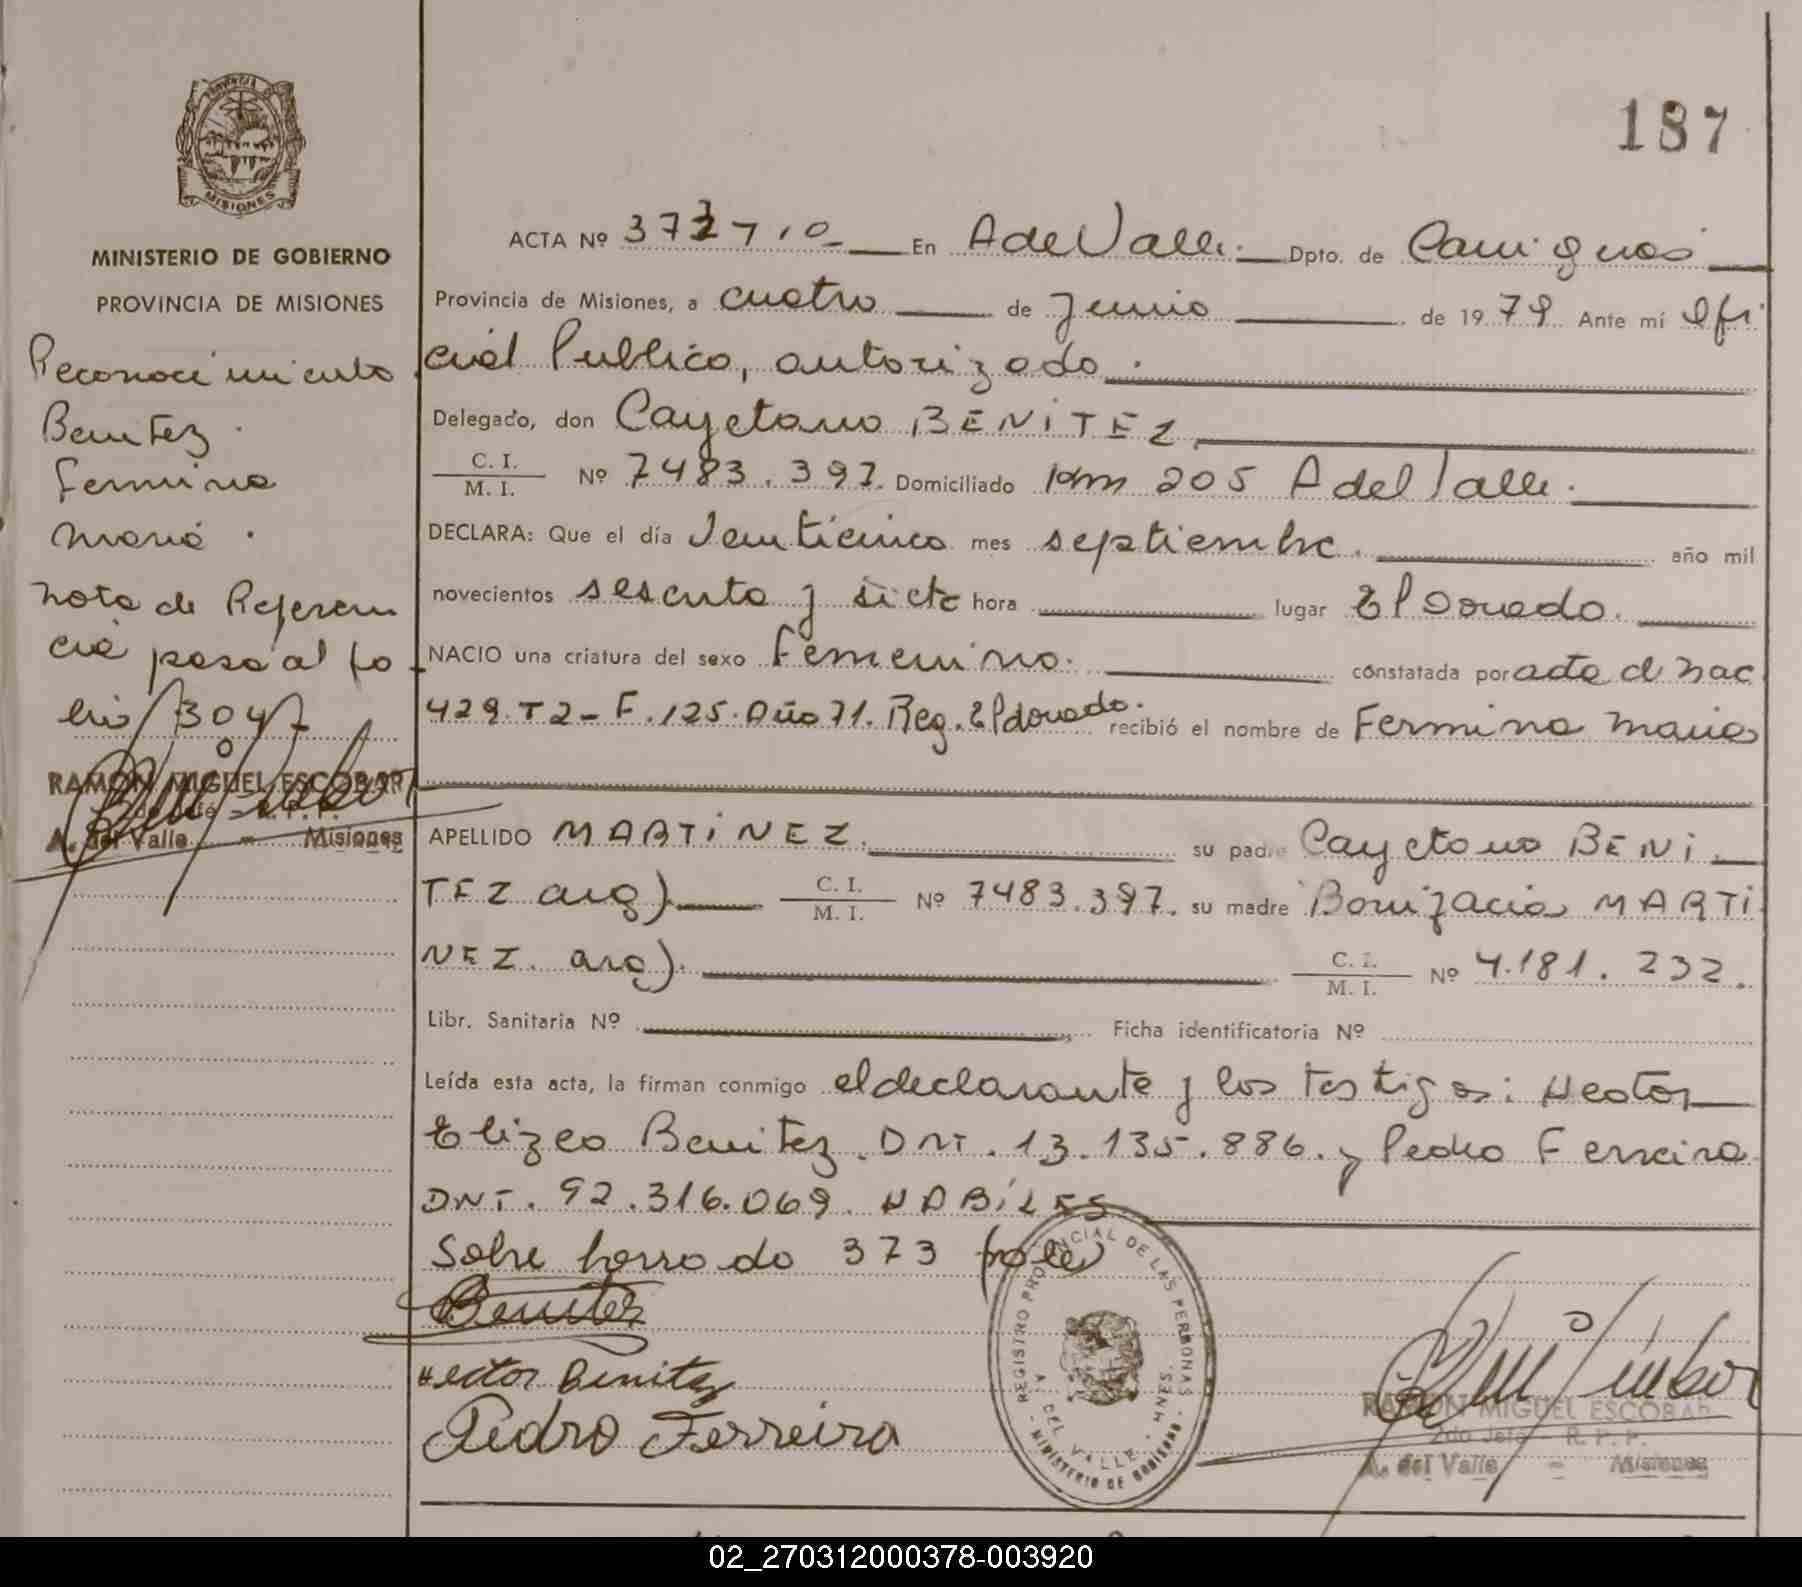 PROVINCIA DE
MISIONES
MINISTERIO DE GOBIERNO
PROVINCIA DE MISIONES
Reconocimiento
Benitez
Fermina
Maria.
Nota de Referen
cia pasa al fo
lio 304
RAMON MIGUEL ESCOBAR
2do Jefe - R. P. P.
A. del Valle - Misiones
187
ACTA Nº 373 En A del Valle. Dpto. de Cainguas
Provincia de Misiones, a cuatro de Junio de 1979 Ante mí Ofi
cial Publico, autorizado.
Delegado, don Cayetano BENITEZ
C. I. / M. I. Nº 7483.397. Domiciliado Km 205 A del Valle.
DECLARA: Que el día Veinticinco mes septiembre. año mil
novecientos sesenta y siete hora lugar ElDorado.
NACIO una criatura del sexo Femenino. constatada por acta d nac
429. T2 - F. 125. Año 71. Reg. Eldorado. recibió el nombre de Fermina Maria
APELLIDO MARTINEZ. su padre Cayetano BENI
TEZ arg). C. I. / M. I. Nº 7483.397. su madre Bonifacia MARTI
NEZ. arg). C. I. / M. I. Nº 4.181.232.
Libr. Sanitaria Nº Ficha identificatoria Nº
Leída esta acta, la firman conmigo el declarante y los testigos: Hector
Elizeo Benitez. DNI. 13.135.886. y Pedro Ferreira
DNI. 92.316.069. HABILES
Sobre borrado 373 vale
Benitez
Hector Benitez
Pedro Ferreira
REGISTRO PROVINCIAL DE LAS PERSONAS
A. DEL VALLE - MNES.
MINISTERIO DE GOBIERNO
RAMON MIGUEL ESCOBAR
2do Jefe - R. P. P.
A. del Valle - Misiones
02_270312000378-003920